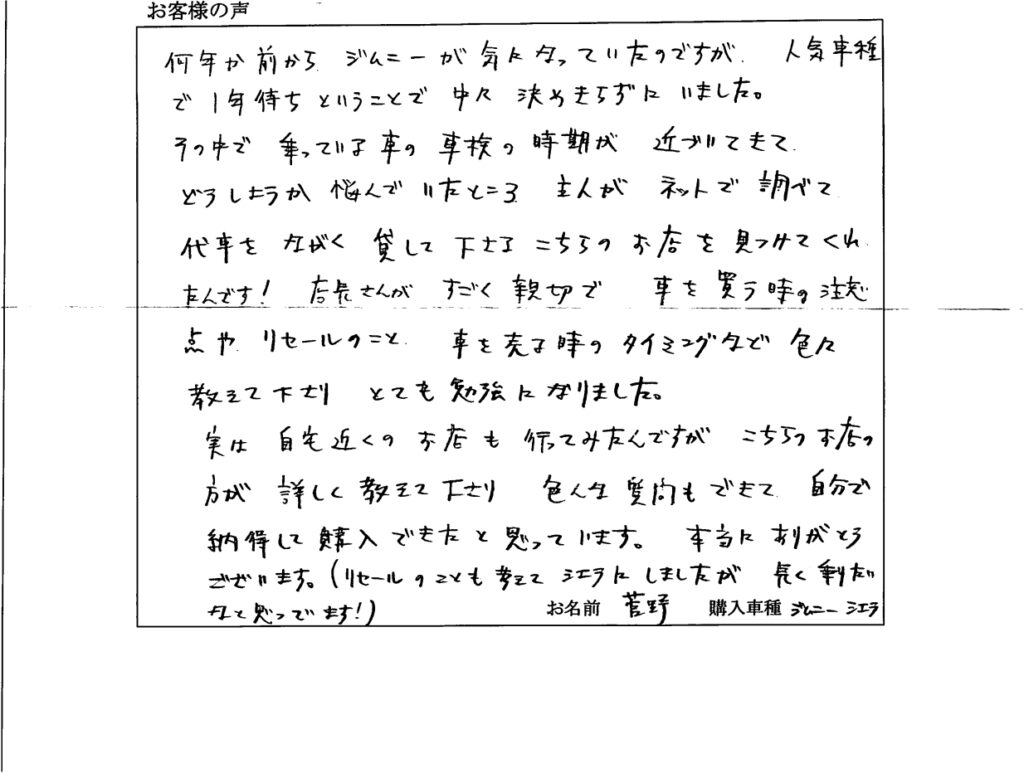 お客様の声
何年か前から ジムニーが気になっていたのですが、人気車種
で1年待ちということで 中々 決めきらずにいました。
その中で 乗っている車の車検の時期が 近づいてきて
どうしようか悩んでいたところ 主人が ネットで調べて
代車を ながく 貸して下さる こちらの お店を見つけてくれ
たんです! 店長さんが すごく親切で 車を買う時の注意
点や リセールのこと、車を売る時のタイミングなど色々
教えて下さり とても勉強になりました。
実は 自宅近くのお店も行ってみたんですが こちらのお店の
方が 詳しく教えて下さり 色んな質問もできて 自分で
納得して購入できたと思っています。本当にありがとう
ございます。(リセールのことも考えてシエラにしましたが 長く乗りたい
なと思ってます!)
お名前 菅野 購入車種 ジムニー シエラ